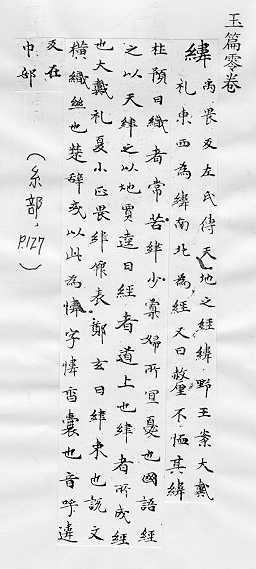 玉篇零卷
緯 禹畏反左氏傳天地之經緯野王案大戴
礼東西為緯南北為經又曰嫠不恤其緯
杜預曰織者常苦緯少寡婦所宜憂也國語經
之以天緯之以地賈逵曰經者道上也緯者所成經
也大戴礼夏小正畏緯 表鄭玄曰緯束也說文
橫織絲也楚辭或以此為 字 香囊也音呼違
反在
巾部
（糸部，P127）